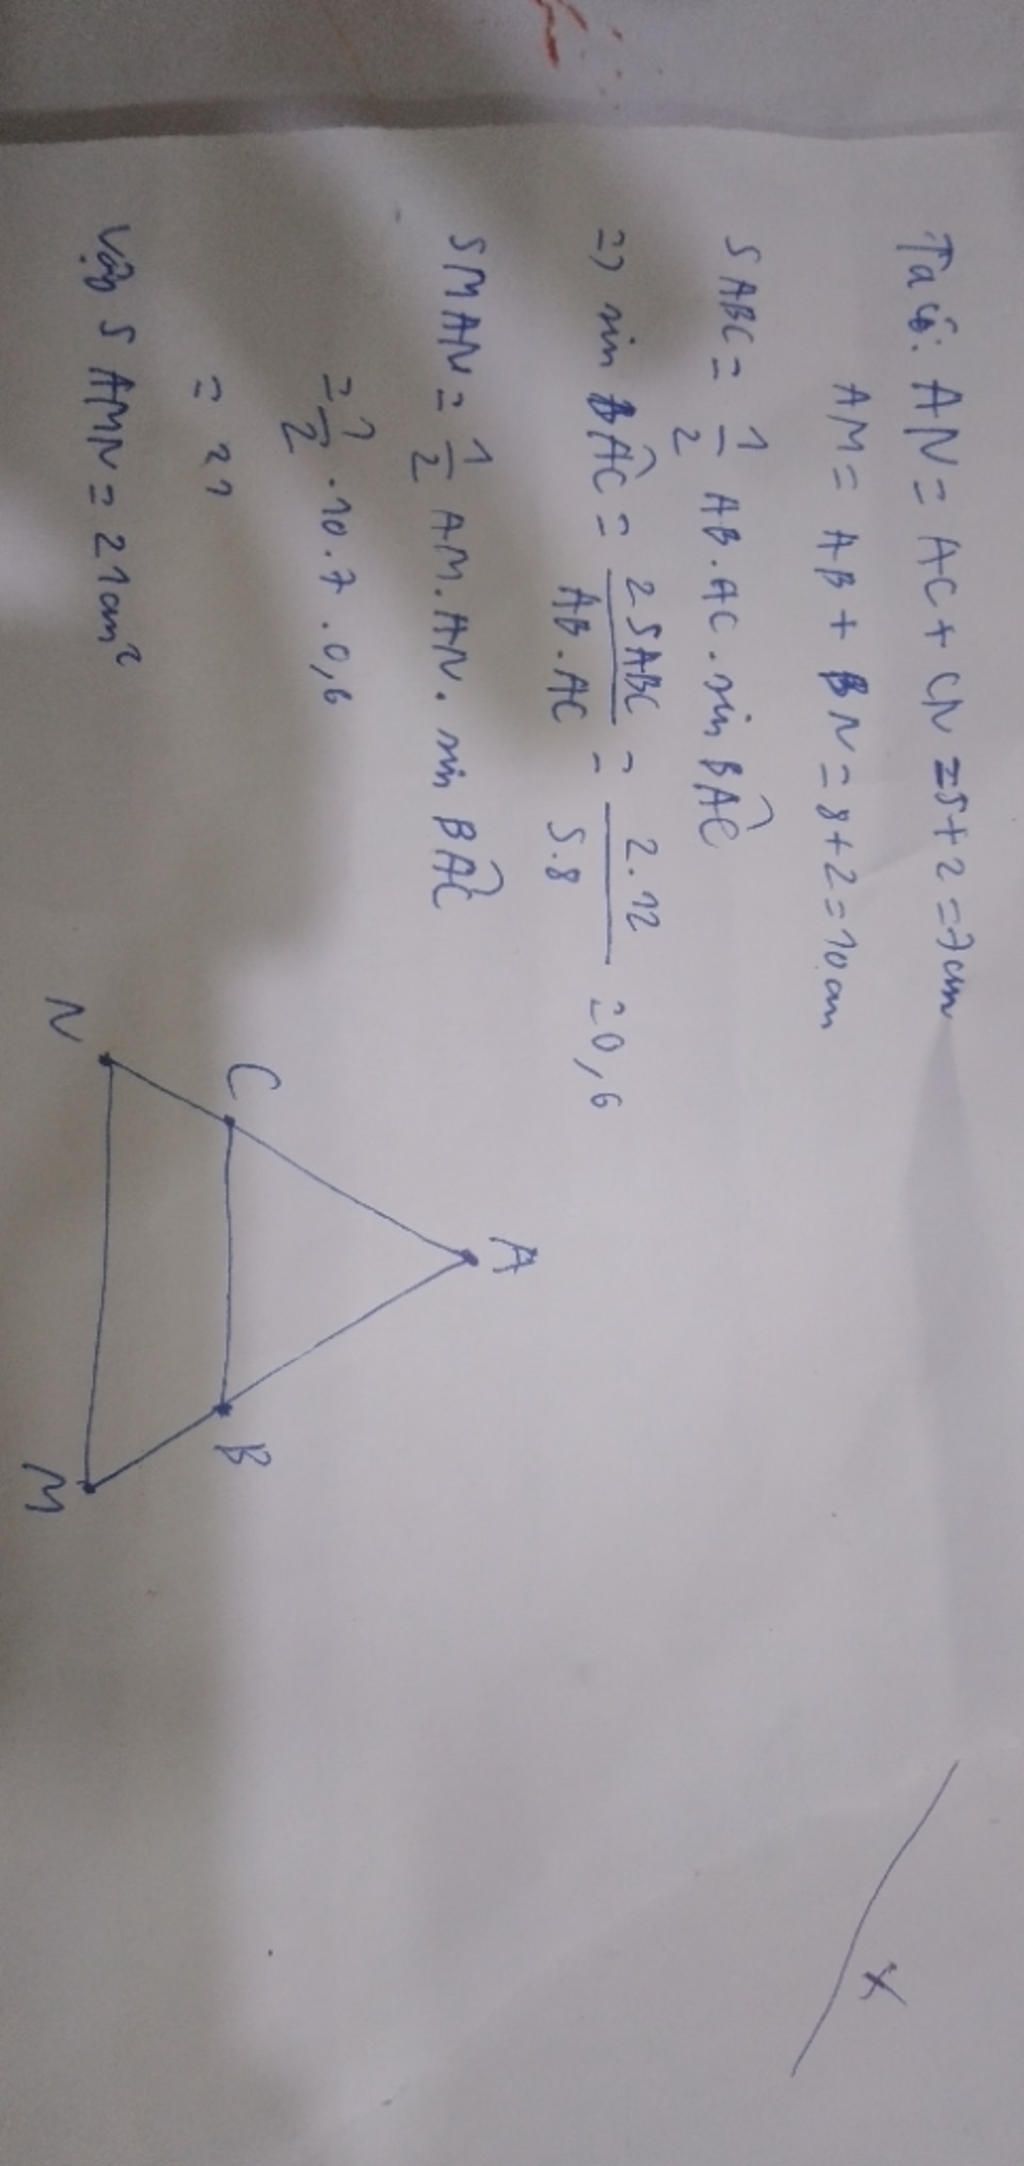 Ta có: AN = AC + CN = 5+2 = 7cm
AM = AB + BN = 8+2 = 10cm
SABC = 1/2 AB.AC.sin BAC^
=> sin BAC^ = 2SABC/AB.AC = 2.12/5.8 = 0,6
SMAN = 1/2 AM.AN.sin BAC^
= 1/2 .10.7.0,6
= 21
Vậy SAMN = 21cm²
A
C B
N M
x